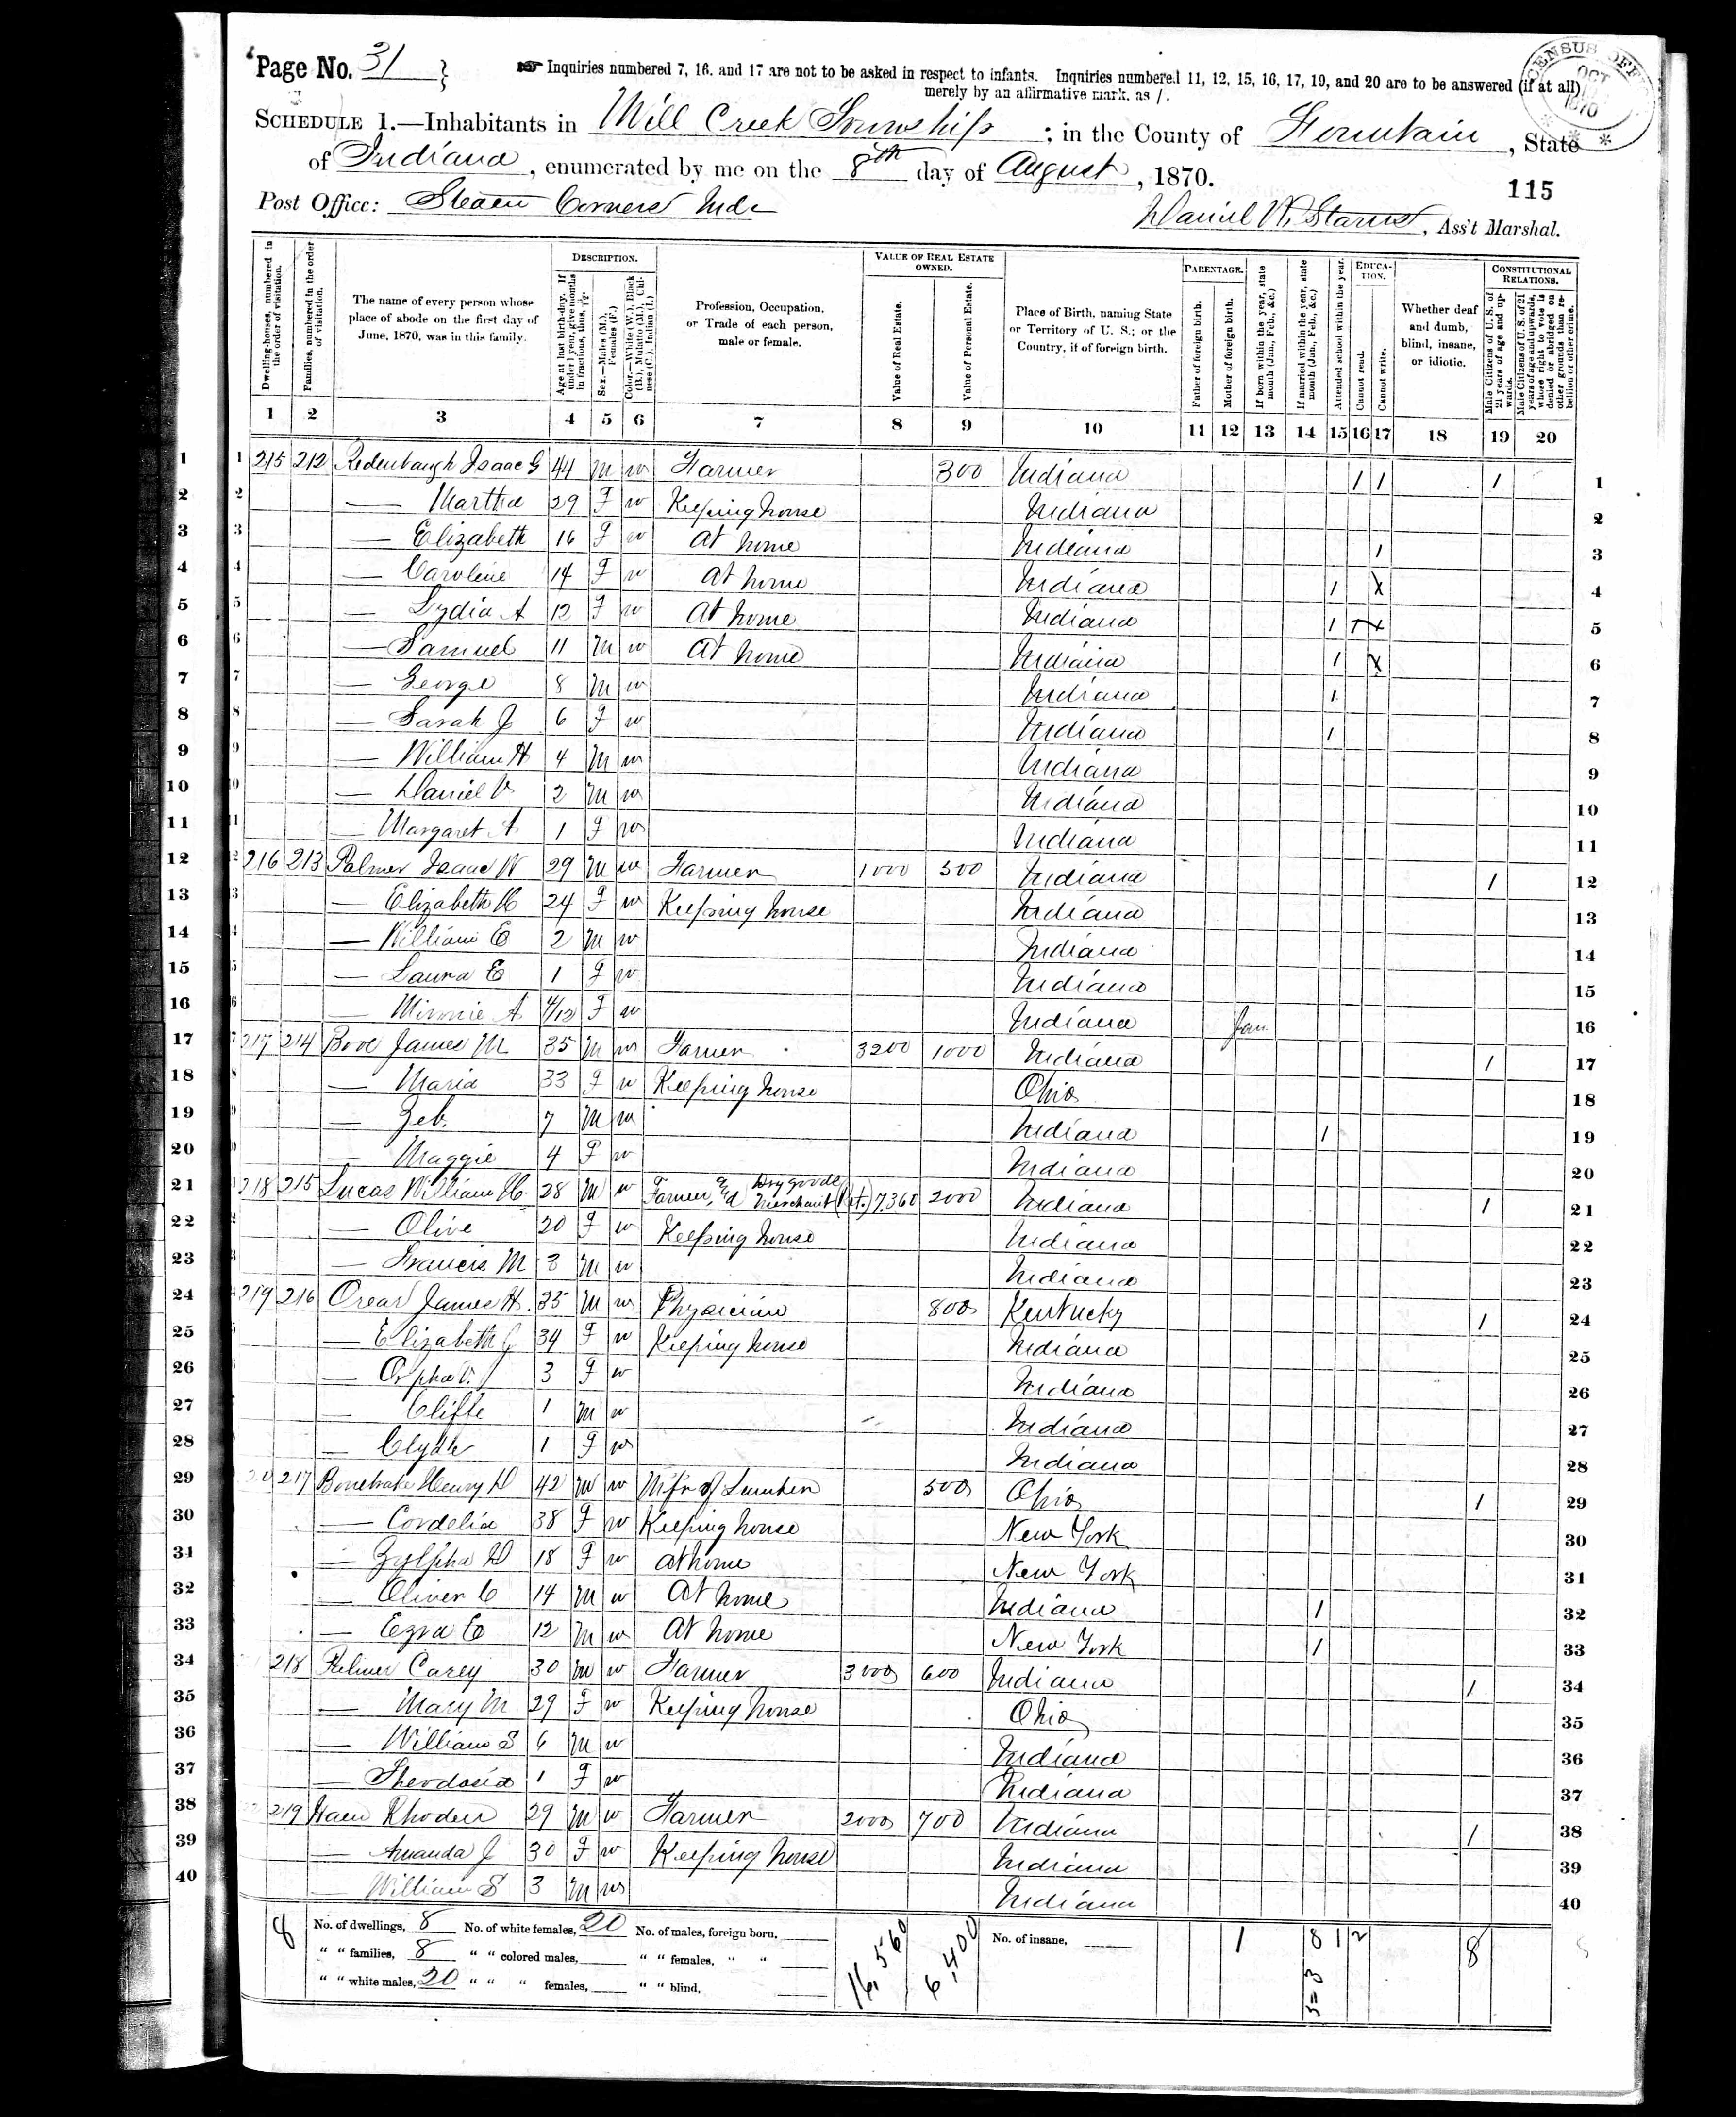 Page No. 31
Inquiries numbered 7, 16, and 17 are not to be asked in respect to infants. Inquiries numbered 11, 12, 15, 16, 17, 19, and 20 are to be answered (if at all)
merely by an affirmative mark, as /.
CENSUS OFFICE OCT 1870
SCHEDULE 1.—Inhabitants in Mill Creek Township ; in the County of Fountain , State
of Indiana , enumerated by me on the 8th day of August , 1870.
115
Post Office: Steam Corners Inda
Daniel W. Starns , Ass't Marshal.
Dwelling-houses, numbered in the order of visitation.
Families, numbered in the order of visitation.
The name of every person whose place of abode on the first day of June, 1870, was in this family.
DESCRIPTION.
Age at last birth-day. If under 1 year, give months in fractions, thus, 3/12
Sex.—Males (M.), Females (F.)
Color.—White (W.), Black (B.), Mulatto (M.), Chinese (C.), Indian (I.)
Profession, Occupation, or Trade of each person, male or female.
VALUE OF REAL ESTATE OWNED.
Value of Real Estate.
Value of Personal Estate.
Place of Birth, naming State or Territory of U. S.; or the Country, if of foreign birth.
PARENTAGE.
Father of foreign birth.
Mother of foreign birth.
If born within the year, state month (Jan., Feb., &c.)
If married within the year, state month (Jan., Feb., &c.)
Attended school within the year.
EDUCATION.
Cannot read.
Cannot write.
Whether deaf and dumb, blind, insane, or idiotic.
CONSTITUTIONAL RELATIONS.
Male Citizens of U. S. of 21 years of age and upwards.
Male Citizens of U. S. of 21 years of age and upwards, whose right to vote is denied or abridged on other grounds than rebellion or other crime.
1 2 3 4 5 6 7 8 9 10 11 12 13 14 15 16 17 18 19 20
1 215 212 Redenbaugh Isaac G 44 M W Farmer 300 Indiana / / / 1
2 — Martha 29 F W Keeping house Indiana 2
3 — Elizabeth 16 F W At home Indiana / 3
4 — Caroline 14 F W At home Indiana / X 4
5 — Lydia A 12 F W At home Indiana / 5
6 — Samuel 11 M W At home Indiana / X 6
7 — George 8 M W Indiana / 7
8 — Sarah J 6 F W Indiana / 8
9 — William H 4 M W Indiana 9
10 — Daniel V 2 M W Indiana 10
11 — Margaret A 1 F W Indiana 11
12 216 213 Palmer Isaac W 29 M W Farmer 1000 500 Indiana / 12
13 — Elizabeth 24 F W Keeping house Indiana 13
14 — William E 2 M W Indiana 14
15 — Laura E 1 F W Indiana 15
16 — Minnie A 4/12 F W Indiana Jan 16
17 217 214 Booe James M 35 M W Farmer 3200 1000 Indiana / 17
18 — Maria 33 F W Keeping house Ohio 18
19 — Zeb. 7 M W Indiana / 19
20 — Maggie 4 F W Indiana 20
21 218 215 Lucas William H. 28 M W Farmer, & Dry goods Merchant (Ret.) 7,360 2000 Indiana / 21
22 — Olive 20 F W Keeping house Indiana 22
23 — Francis M 3 M W Indiana 23
24 219 216 Orear James H. 35 M W Physician 800 Kentucky / 24
25 — Elizabeth J 34 F W Keeping house Indiana 25
26 — Orpha V. 3 F W Indiana 26
27 — 1 M W Indiana 27
28 — Clyde 1 F W Indiana 28
29 217 Bonebrake Henry D 42 M W Mfr of Lumber 500 Ohio / 29
30 — Cordelia 38 F W Keeping house New York 30
31 — Zylpha D 18 F W At home New York 31
32 — Oliver C 14 M W At home Indiana / 32
33 — Ezra E 12 M W At home New York / 33
34 218 Palmer Carey 30 M W Farmer 3000 600 Indiana / 34
35 — Mary M 29 F W Keeping house Ohio 35
36 — William S 6 M W Indiana 36
37 — Theodosia 1 F W Indiana 37
38 219 Rhoden 29 M W Farmer 2000 700 Indiana / 38
39 — Amanda J 30 F W Keeping house Indiana 39
40 — William S 3 M W Indiana 40
8 No. of dwellings, 8 No. of white females, 20 No. of males, foreign born, 16,560 6,400 No. of insane, 1 8 1 2 8
" " families, 8 " " colored males, " " females, " "
" " white males, 20 " " " females, " " blind,